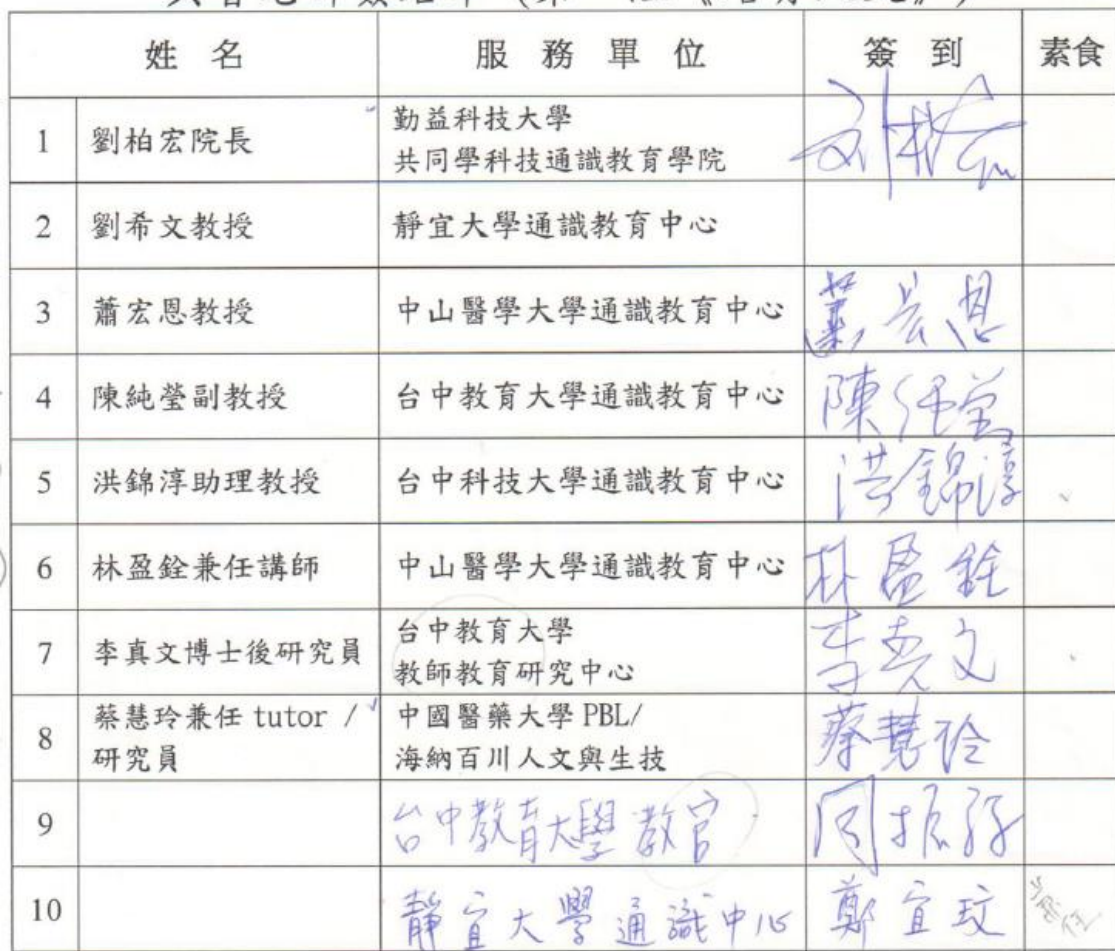 姓名 服務單位 簽到 素食
1 劉柏宏院長 勤益科技大學 刘柏宏
共同學科技通識教育學院
2 劉希文教授 靜宜大學通識教育中心
3 蕭宏恩教授 中山醫學大學通識教育中心 蕭宏恩
4 陳純瑩副教授 台中教育大學通識教育中心 陳純瑩
5 洪錦淳助理教授 台中科技大學通識教育中心 洪錦淳
6 林盈銓兼任講師 中山醫學大學通識教育中心 林盈銓
7 李真文博士後研究員 台中教育大學 李真文
教師教育研究中心
8 蔡慧玲兼任 tutor / 中國醫藥大學 PBL/ 蔡慧玲
研究員 海納百川人文與生技
9 台中教育大學教官
10 靜宜大學通識中心 鄭宜玟